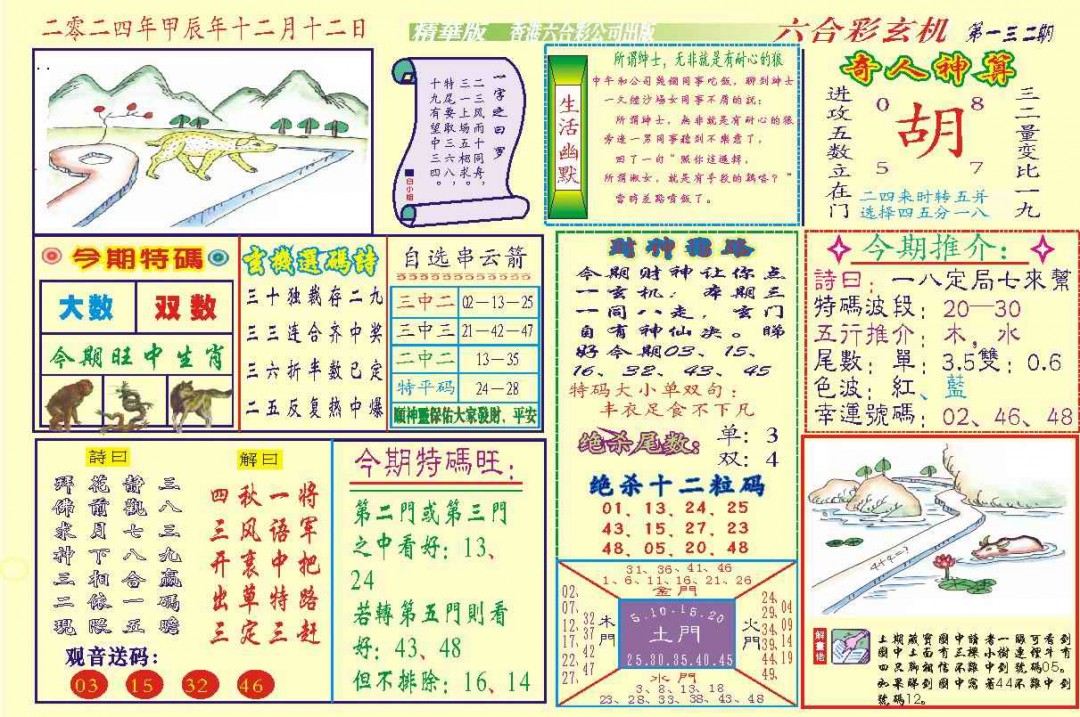 二零二四年甲辰年十二月十二日
精華版 香港六合彩公司出版
六合彩玄机 第一三二期
一字之曰：罗
二三风雨十同舟，
三一上场五相求，
特尾要取三六。
十九有望中三四八
白小姐
生活幽默
所謂紳士，无非就是有耐心的狼
中午和公司幾個同事吃飯，聊到紳士
一久經沙場女同事不屑的說：
所謂紳士，無非就是有耐心的狼
旁邊一男同事聽到不樂意了，
回了一句"照你這邏輯，
所謂淑女，就是有手段的鷄嘍？"
當時差點噴飯了。
奇人神算
进攻五数立在门
0 8
胡
5 7
三二量变比一九
二四来时转五并
选择四五分一八
今期特碼
大数 双数
今期旺中生肖
玄機選碼詩
三十独裁存二九
三三连合齐中奖
三六折半数已定
二五反复热中爆
自选串云箭
三中二 02—13—25
三中三 21—42—47
二中二 13—35
特平码 24—28
順神靈保佑大家發財、平安
財神指路
今期财神让你点
一玄机：本期三
一同八走，玄门
自有神仙决。睇
好今期03、15、
16、32、43、45
特码大小单双句：
丰衣足食不下凡
绝杀尾数： 单：3
双：4
绝杀十二粒码
01、13、24、25
43、15、27、23
48、05、20、48
今期推介：
詩曰：一八定局七來幫
特碼波段：20—30
五行推介：木，水
尾數：單：3.5雙：0.6
色波：紅、藍
幸運號碼：02、46、48
詩曰
三八三九贏碼瞻
靜觀七八合一五
花前月下相依隈
拜佛求神三二現
解曰
将军把路赶
一语中特三
秋风裏草定
四三开出三
观音送码：
03 15 32 46
今期特碼旺：
第二門或第三門
之中看好：13、
24
若轉第五門則看
好：43、48
但不排除：16、14
31、36、41、46
1、6、11、16、21、26
金門
02、07、12、17、22、27、
32 37 42 47
木門
5.10.15.20
土門
25.30.35.40.45
火門
24、29、34、39、44、49、
04 09 14 19
水門
3、8、13、18
23、28、33、38、43、48、
4+4=?
解畫佬
上期藏寶圖中請者一眼可看到
圖中上面有三棵小樹連徑牛有
四只腳相信不難中到號碼05。
如果睇到圖中寫著44不難中到
號碼12。